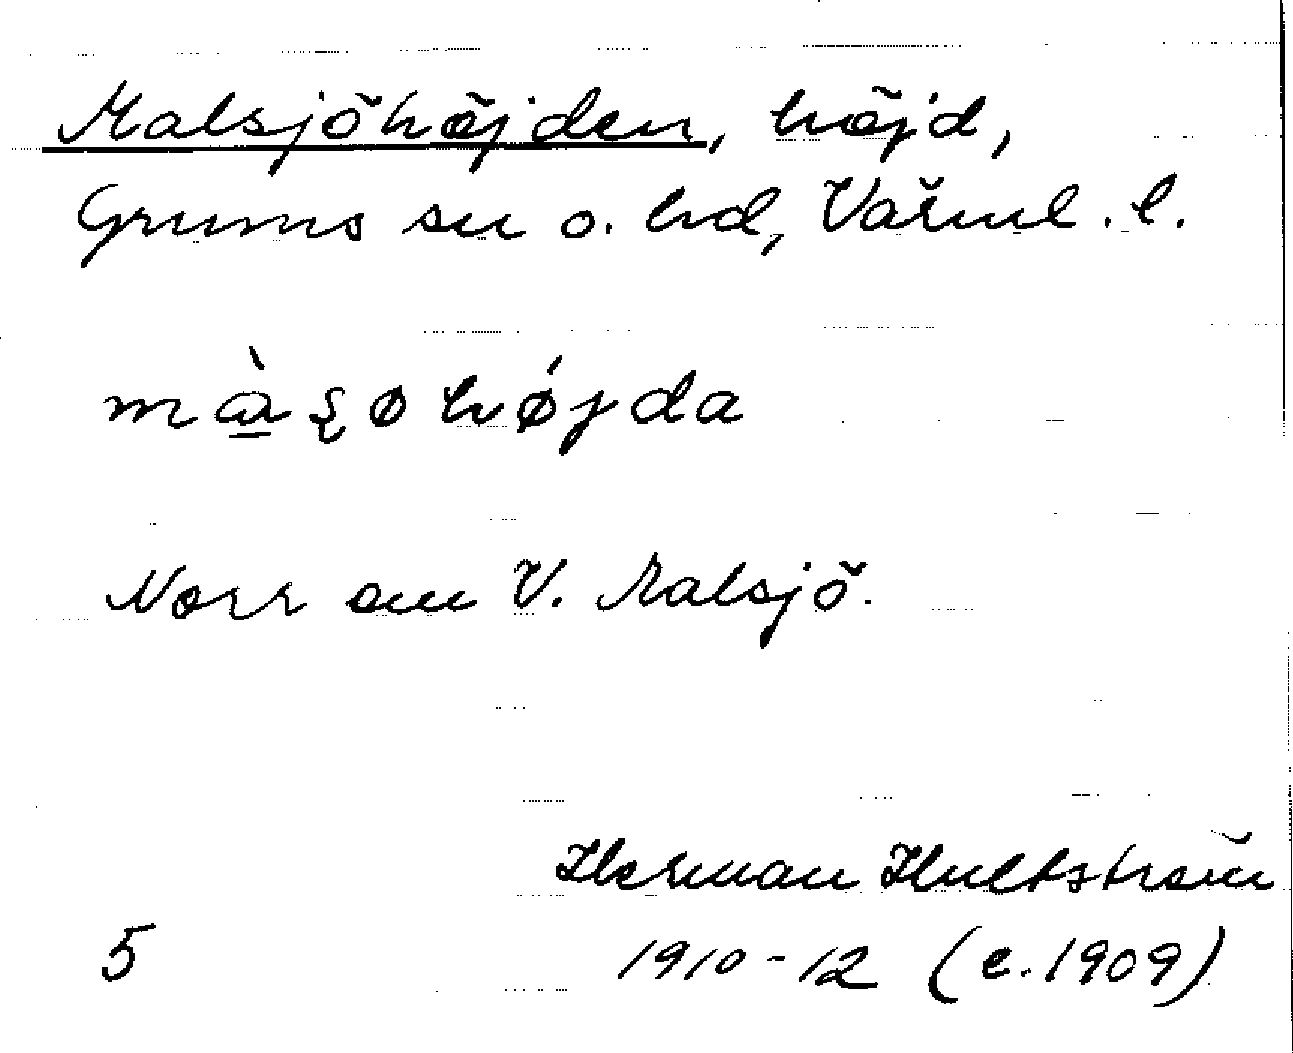 Malsjöhöjden, höjd,
Grums sn o. hd, Värml. l.
mὰʂøhøjda
Norr om V. Malsjö.
Herman Hultström
5 1910-12 (c. 1909)